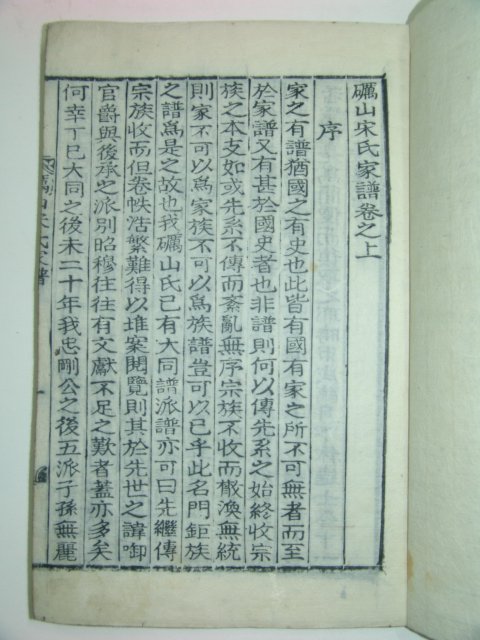 礪山宋氏家譜卷之上
序
家之有譜猶國之有史也此皆有國有家之所不可無者而至
於家譜又有甚於國史者也非譜則何以傳先系之始終收宗
族之本支如或先系不傳而紊亂無序宗族不收而散渙無統
則家不可以爲家族不可以爲族譜豈可以已乎此名門鉅族
之譜爲是之故也我礪山氏已有大同譜派譜亦可曰先繼傳
宗族收而但卷帙浩繁難得以堆案閱覽則其於先世之諱啣
官爵與後承之派別昭穆往往有文獻不足之歎者蓋亦多矣
何幸丁巳大同之後未二十年我忠剛公之後五派子孫無麗
礪山宋氏家譜
一